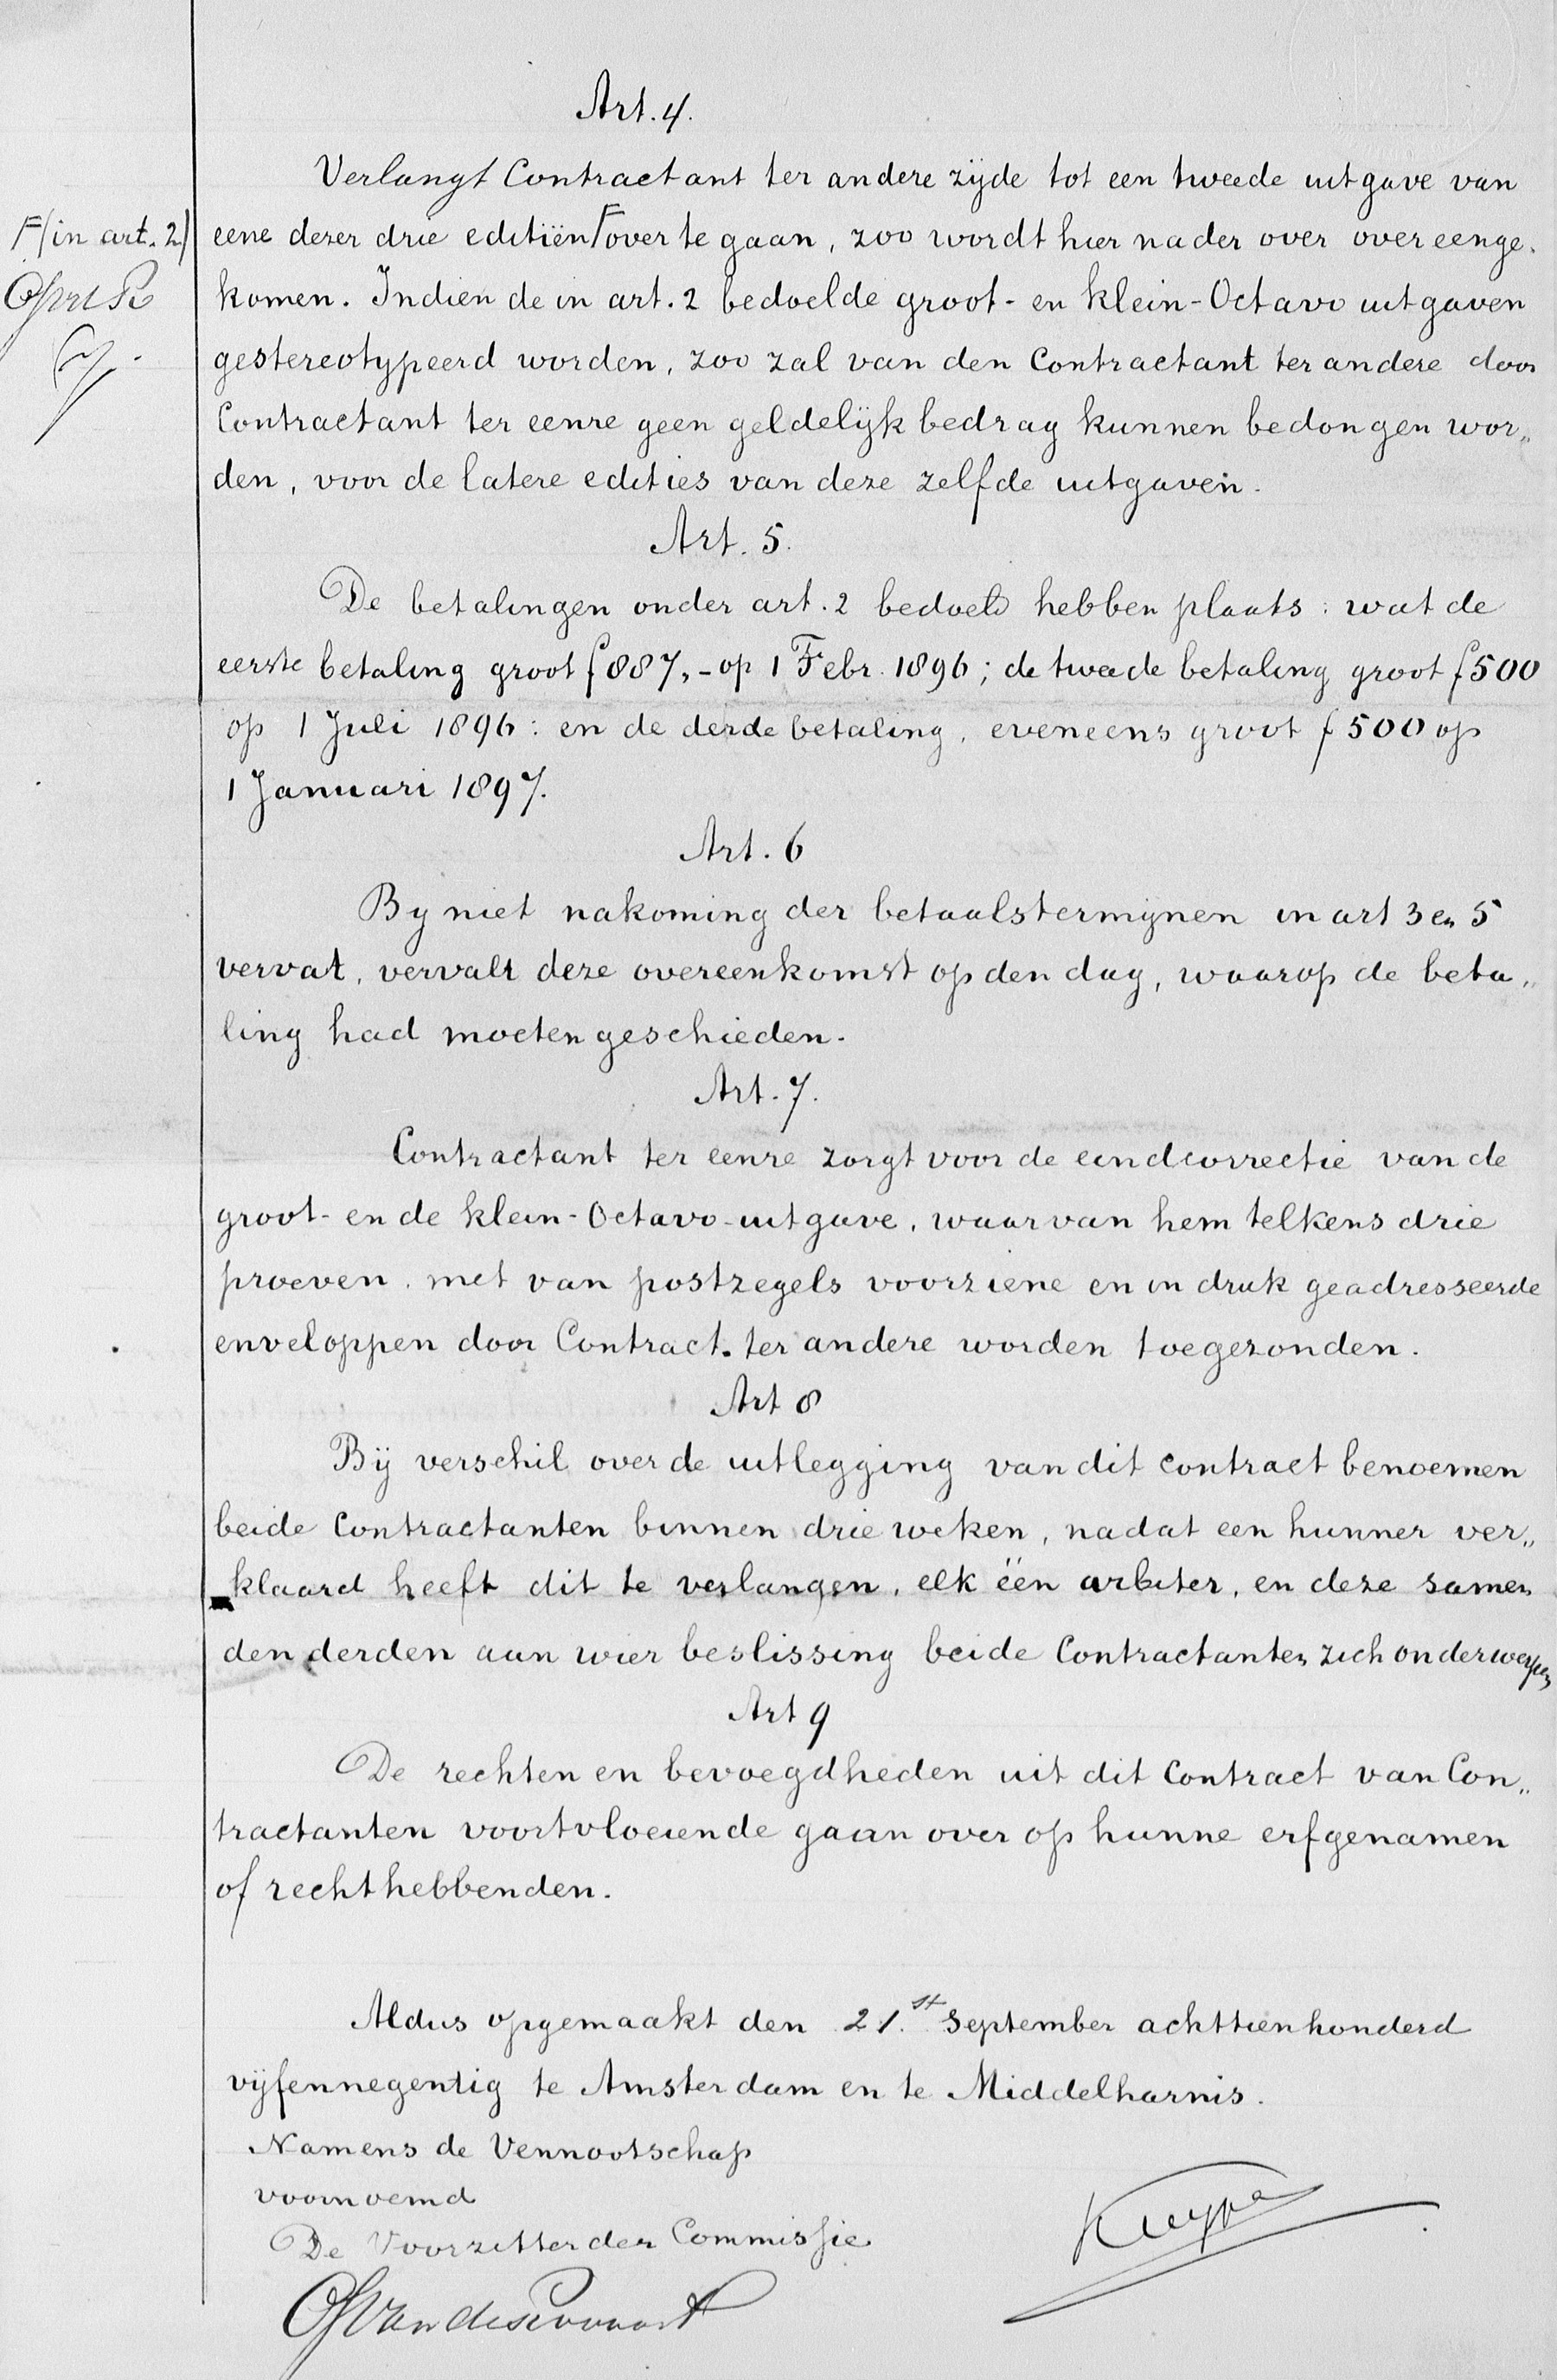 Art. 4.
Verlangt Contractant ter andere zijde tot een tweede uitgave van
F(in art. 2) eene dezer drie editiën F over te gaan, zoo wordt hier nader over overeenge-
komen. Indien de in art. 2 bedoelde groot- en klein-Octavo uitgaven
gestereotypeerd worden, zoo zal van den Contractant ter andere door
Contractant ter eenre geen geldelijk bedrag kunnen bedongen wor„
den, voor de latere edities van deze zelfde uitgaven.
Art. 5.
De betalingen onder art. 2 bedoeld hebben plaats: wat de
eerste betaling groot f 887,- op 1 Febr. 1896; de tweede betaling groot f 500
op 1 Juli 1896: en de derde betaling, eveneens groot f 500 op
1 Januari 1897.
Art. 6
By niet nakoming der betaalstermynen in art 3 en 5
vervat, vervalt deze overeenkomst op den dag, waarop de beta„
ling had moeten geschieden.
Art. 7.
Contractant ter eenre zorgt voor de eindcorrectie van de
groot- en de klein-Octavo-uitgave, waarvan hem telkens drie
proeven, met van postzegels voorziene en in druk geadresseerde
enveloppen door Contract. ter andere worden toegezonden.
Art 8
Bij verschil over de uitlegging van dit contract benoemen
beide Contractanten binnen drie weken, nadat een hunner ver„
klaard heeft dit te verlangen, elk één arbiter, en deze samen
den derden aan wier beslissing beide Contractanten zich onderwerpen
Art 9
De rechten en bevoegdheden uit dit Contract van Con„
tractanten voortvloeiende gaan over op hunne erfgenamen
of rechthebbenden.
Aldus opgemaakt den 21.st September achttienhonderd
vijfennegentig te Amsterdam en te Middelharnis.
Namens de Vennootschap
voornoemd
De Voorzitter der Commissie
Kuyper